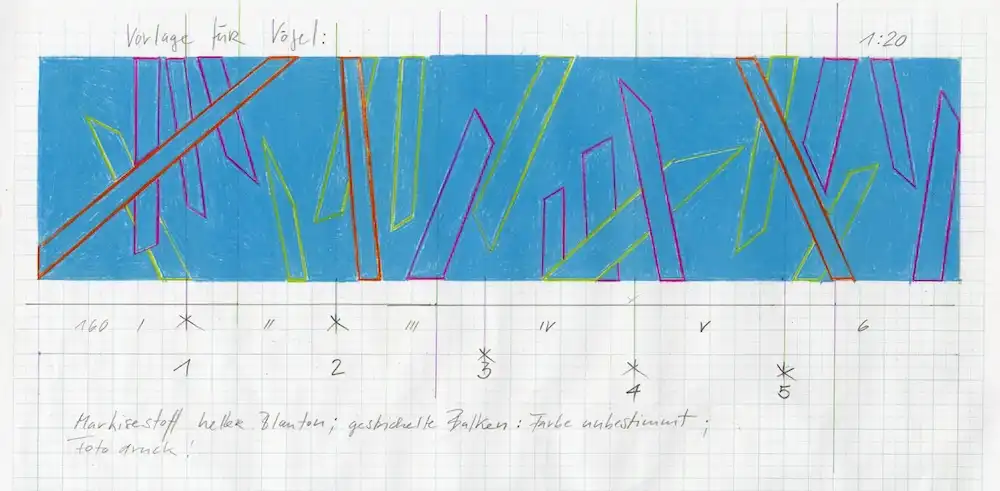 Vorlage für Vögel:
1:20
160 I II III IV V 6
1 2 3 4 5
Markisenstoff heller Blauton; gestrichelte Balken: Farbe unbestimmt;
Fotodruck!